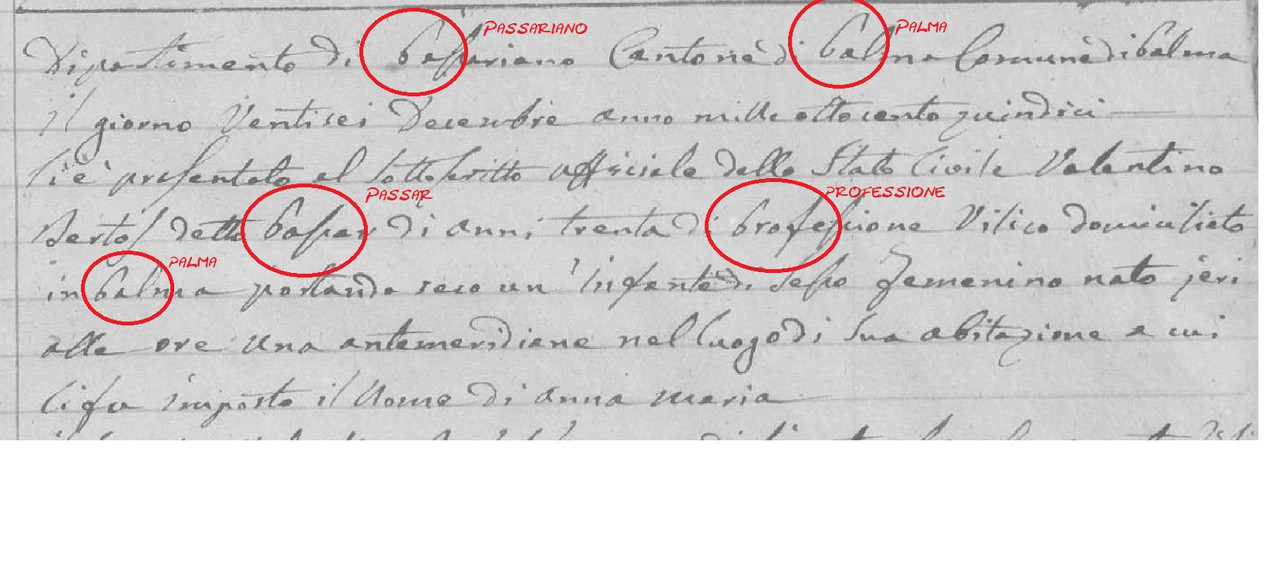 PASSARIANO PALMA
Dipartimento di Passariano Cantone di Palma Comune di Palma
il giorno Ventisei Decembre anno mille ottocento quindici
Si è presentato al sottoscritto Officiale dello Stato Civile Valentino
PASSAR PROFESSIONE
Bertos detto Passar di anni trenta di Professione Vilico domiciliato
PALMA
in Palma portando seco un' Infante di sesso femenino nato jeri
alle ore una antemeridiane nel luogo di sua abitazione a cui
si fu imposto il Nome di anna maria